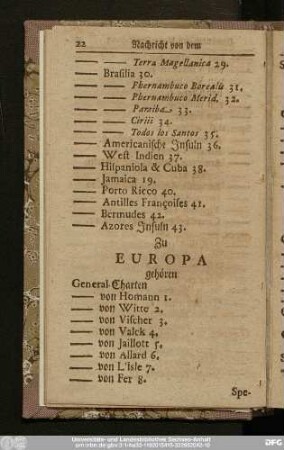 22 Nachricht von dem
— — Terra Magellanica 29.
— Brasilia 30.
— — Phernambuco Borealis 31.
— — Phernambuco Merid. 32.
— — Paraiba 33.
— — Ciriii 34.
— — Todos los Santos 35.
— Americanische Insuln 36.
— West Indien 37.
— Hispaniola & Cuba 38.
— Jamaica 19.
— Porto Ricco 40.
— Antilles Françoises 41.
— Bermudes 42.
— Azores Insuln 43.
Zu
EUROPA
gehören
General-Charten
— von Homann 1.
— von Witte 2.
— von Vischer 3.
— von Valck 4.
— von Jaillott 5.
— von Allard 6.
— von L'Isle 7.
— von Fer 8.
Spe-
Universitäts- und Landesbibliothek Sachsen-Anhalt
DFG